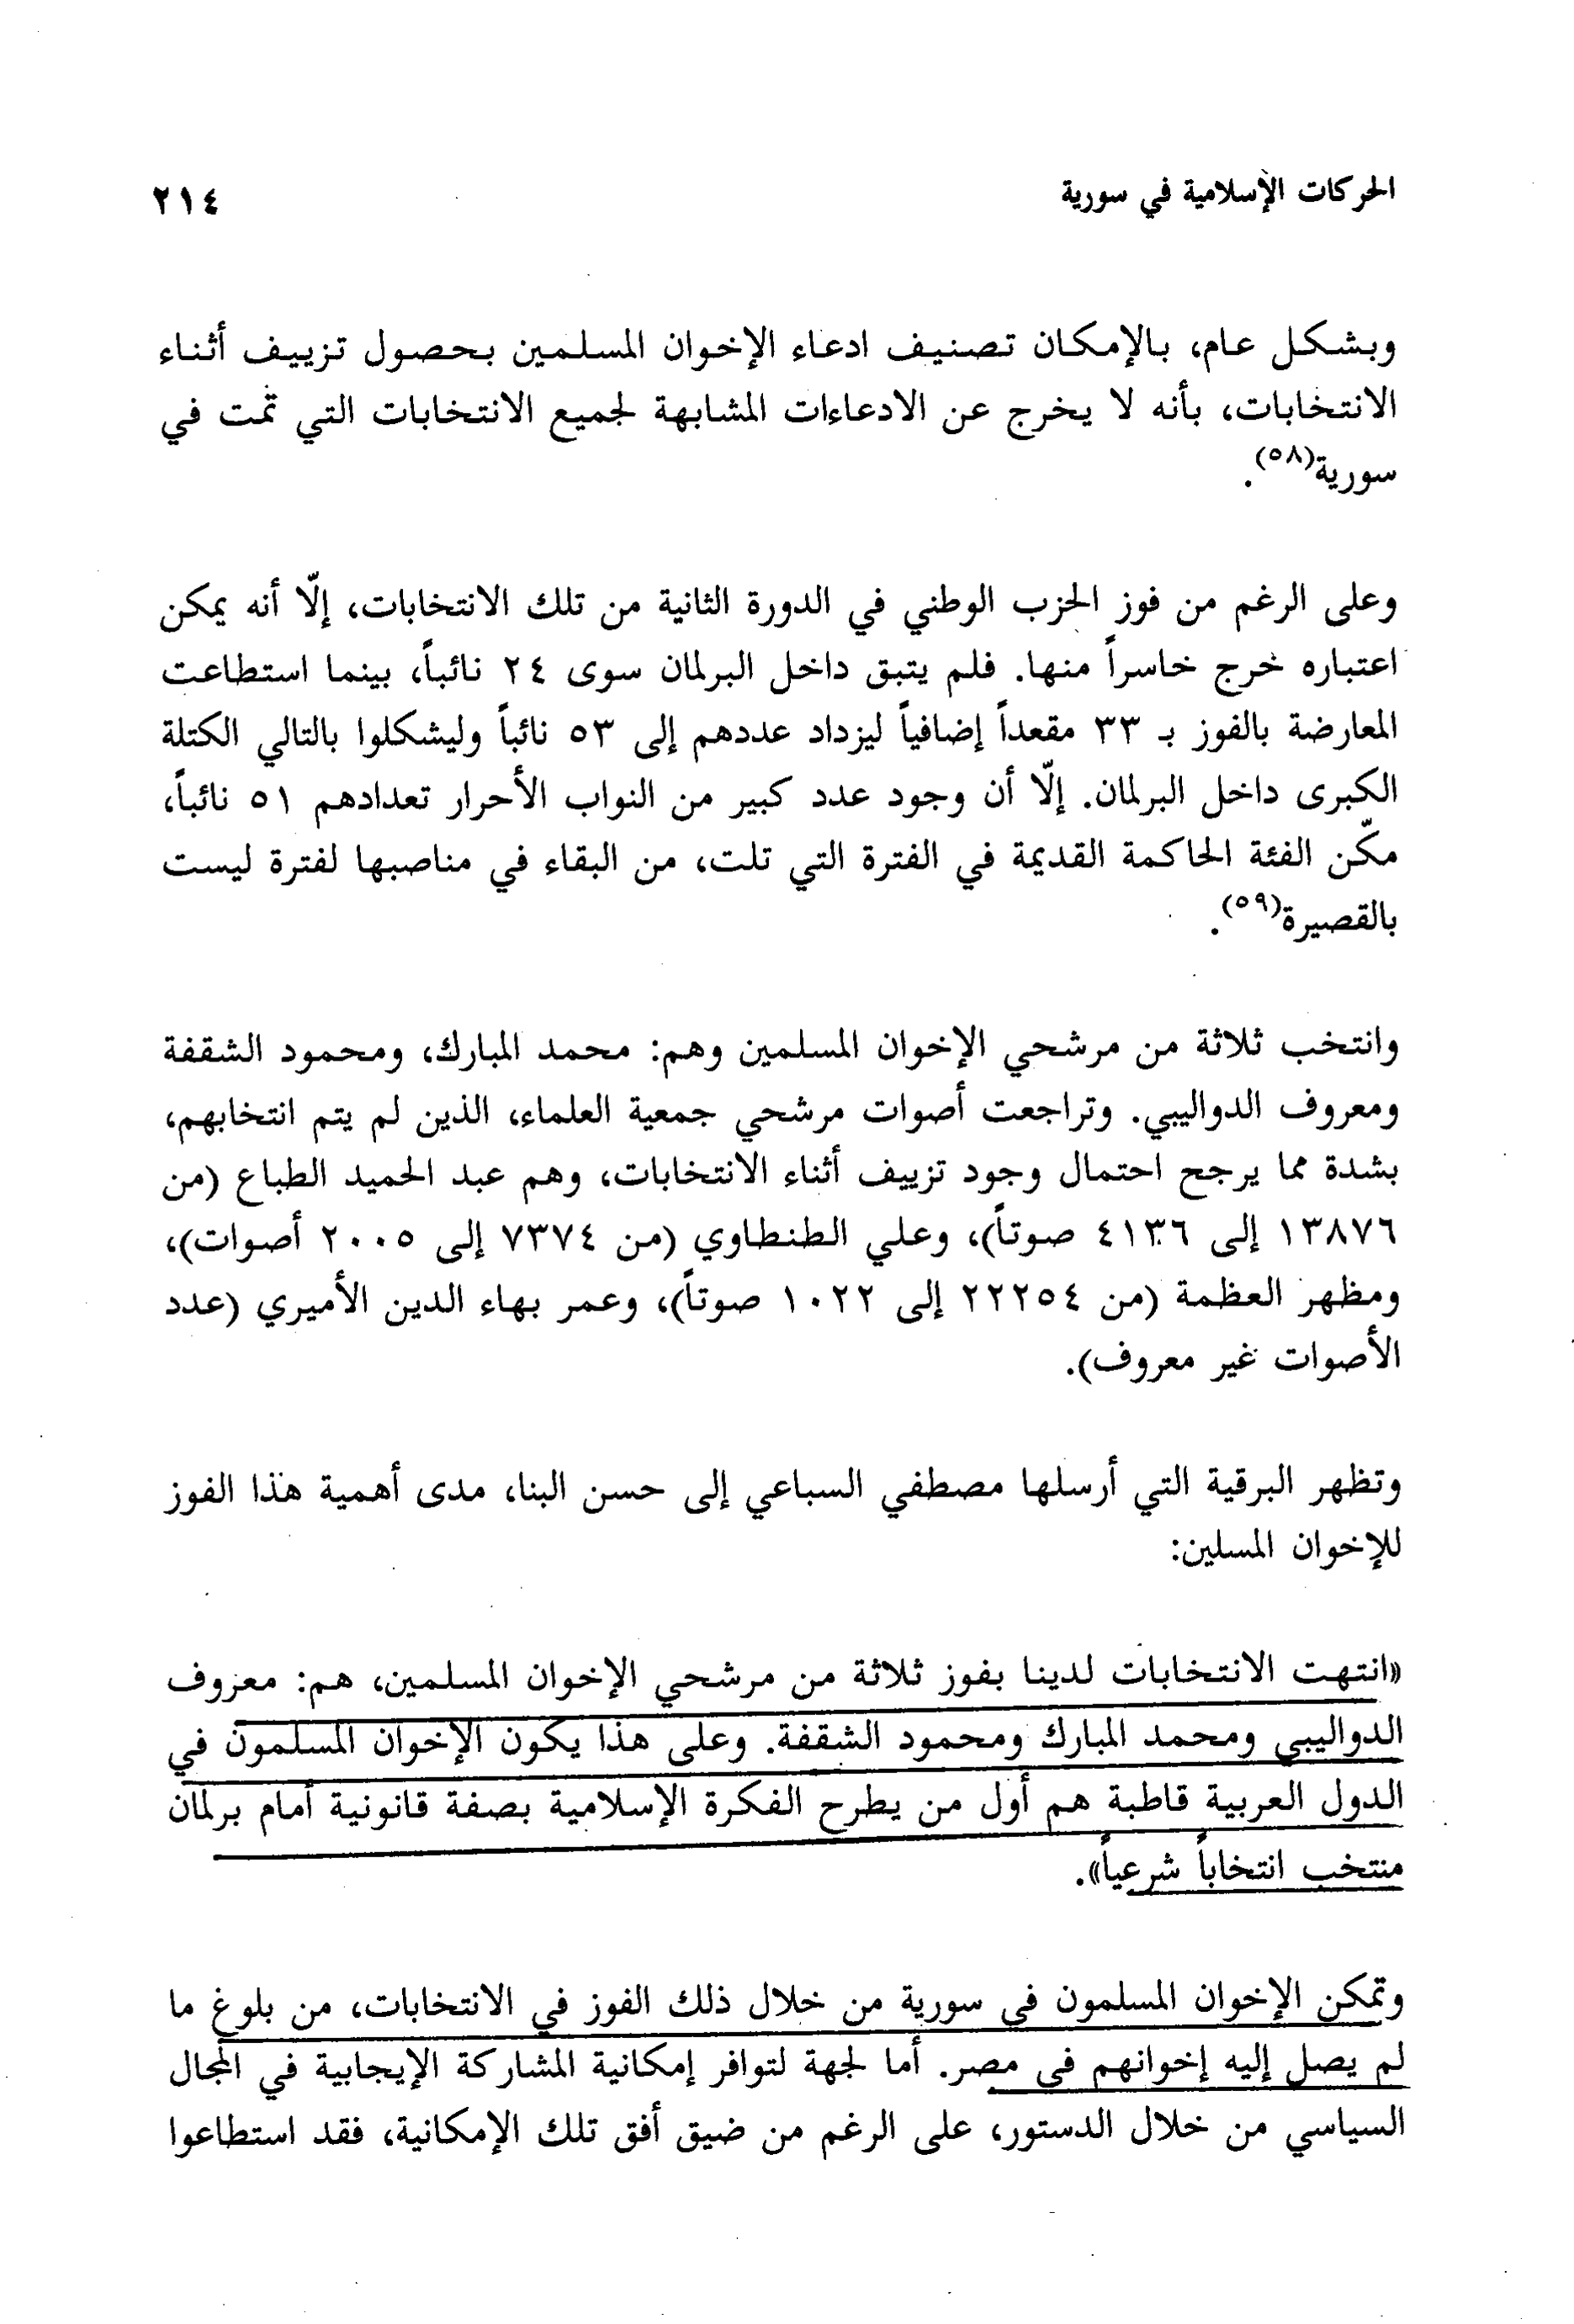 الحركات الإسلامية في سورية
٢١٤
وبشكل عام، بالإمكان تصنيف ادعاء الإخوان المسلمين بحصول تزييف أثناء
الانتخابات، بأنه لا يخرج عن الادعاءات المشابهة لجميع الانتخابات التي تمت في
سورية(٥٨).
وعلى الرغم من فوز الحزب الوطني في الدورة الثانية من تلك الانتخابات، إلّا أنه يمكن
اعتباره خرج خاسراً منها. فلم يتبق داخل البرلمان سوى ٢٤ نائباً، بينما استطاعت
المعارضة بالفوز بـ ٣٣ مقعداً إضافياً ليزداد عددهم إلى ٥٣ نائباً وليشكلوا بالتالي الكتلة
الكبرى داخل البرلمان. إلّا أن وجود عدد كبير من النواب الأحرار تعدادهم ٥١ نائباً،
مكّن الفئة الحاكمة القديمة في الفترة التي تلت، من البقاء في مناصبها لفترة ليست
بالقصيرة(٥٩).
وانتخب ثلاثة من مرشحي الإخوان المسلمين وهم: محمد المبارك، ومحمود الشقفة
ومعروف الدواليبي. وتراجعت أصوات مرشحي جمعية العلماء، الذين لم يتم انتخابهم،
بشدة مما يرجح احتمال وجود تزييف أثناء الانتخابات، وهم عبد الحميد الطباع (من
١٣٨٧٦ إلى ٤١٣٦ صوتاً)، وعلي الطنطاوي (من ٧٣٧٤ إلى ٢٠٠٥ أصوات)،
ومظهر العظمة (من ٢٢٢٥٤ إلى ١٠٢٢ صوتاً)، وعمر بهاء الدين الأميري (عدد
الأصوات غير معروف).
وتظهر البرقية التي أرسلها مصطفي السباعي إلى حسن البنا، مدى أهمية هذا الفوز
للإخوان المسلين:
«انتهت الانتخابات لدينا بفوز ثلاثة من مرشحي الإخوان المسلمين، هم: معروف
الدواليبي ومحمد المبارك ومحمود الشقفة. وعلى هذا يكون الإخوان المسلمون في
الدول العربية قاطبة هم أول من يطرح الفكرة الإسلامية بصفة قانونية أمام برلمان
منتخب انتخاباً شرعياً».
وتمكن الإخوان المسلمون في سورية من خلال ذلك الفوز في الانتخابات، من بلوغ ما
لم يصل إليه إخوانهم في مصر. أما لجهة لتوافر إمكانية المشاركة الإيجابية في المجال
السياسي من خلال الدستور، على الرغم من ضيق أفق تلك الإمكانية، فقد استطاعوا